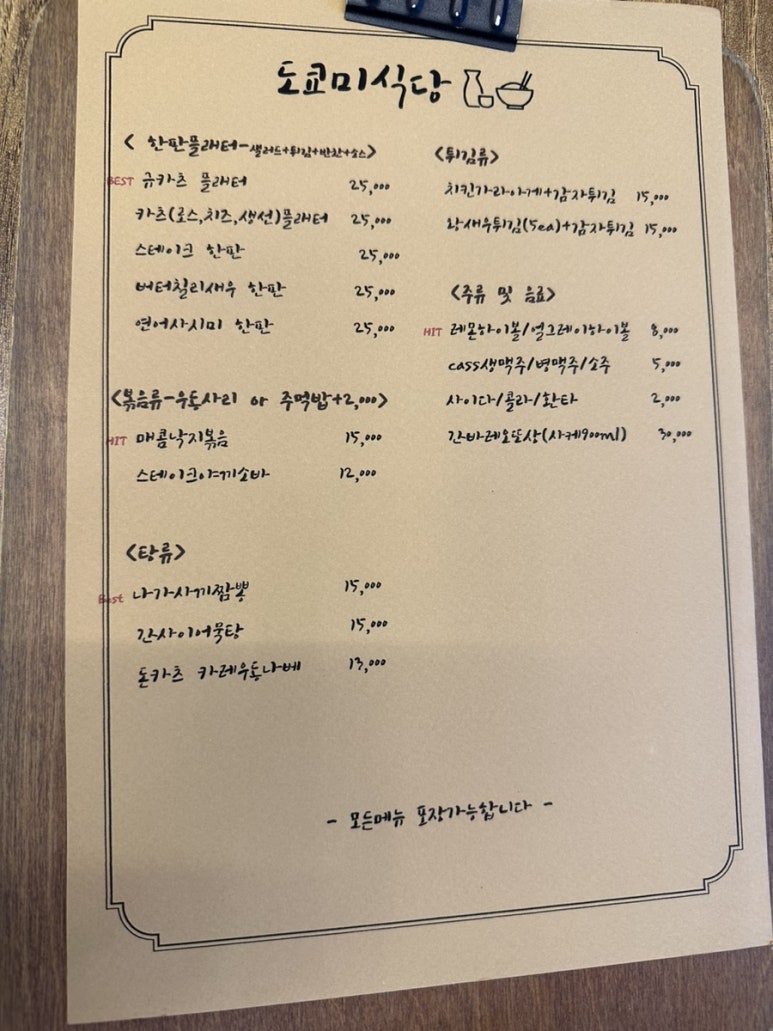 도쿄미식당
< 한판플래터-샐러드+튀김+반찬+소스>
BEST 규카츠 플래터 25,000
카츠(로스,치즈,생선)플래터 25,000
스테이크 한판 25,000
버터칠리새우 한판 25,000
연어사시미 한판 25,000
<볶음류-우동사리 or 주먹밥+2,000>
HIT 매콤낙지볶음 15,000
스테이크야끼소바 12,000
<탕류>
Best 나가사끼짬뽕 15,000
간사이어묵탕 15,000
돈카츠 카레우동나베 13,000
<튀김류>
치킨가라아게+감자튀김 15,000
왕새우튀김(5ea)+감자튀김 15,000
<주류 및 음료>
HIT 레몬하이볼/얼그레이하이볼 8,000
cass생맥주/병맥주/소주 5,000
사이다/콜라/환타 2,000
간바레오또상(사케900ml) 30,000
- 모든메뉴 포장가능합니다 -